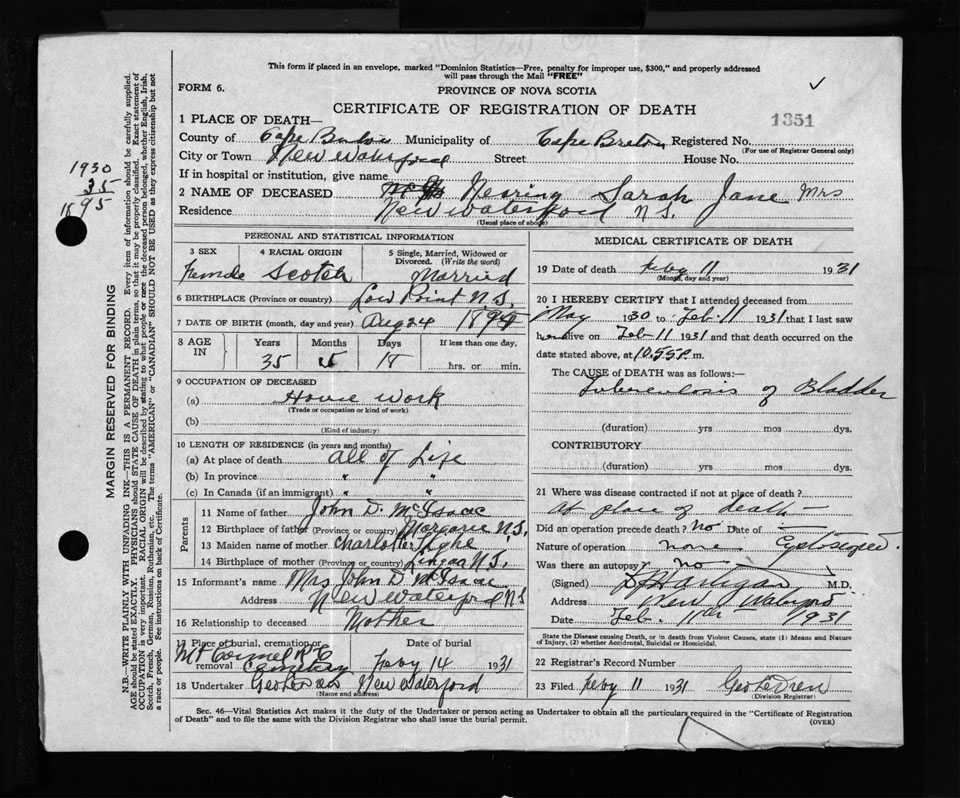 This form if placed in an envelope, marked "Dominion Statistics—Free, penalty for improper use, $300," and properly addressed
will pass through the Mail "FREE"
FORM 6.
PROVINCE OF NOVA SCOTIA
CERTIFICATE OF REGISTRATION OF DEATH
1351
1 PLACE OF DEATH—
County of Cape Breton Municipality of Cape Breton Registered No.
(For use of Registrar General only)
City or Town New Waterford Street House No.
If in hospital or institution, give name
2 NAME OF DECEASED Nearing Sarah Jane Mrs
Residence New Waterford N.S.
(Usual place of abode)
1930
35
1895
MARGIN RESERVED FOR BINDING
N.B.—WRITE PLAINLY WITH UNFADING INK—THIS IS A PERMANENT RECORD. Every item of information should be carefully supplied.
AGE should be stated EXACTLY. PHYSICIANS should STATE CAUSE OF DEATH in plain terms, so that it may be properly classified. Exact statement of
OCCUPATION is very important. RACIAL ORIGIN will be described by stating to what people or race the deceased person belonged, whether English, Irish,
Scotch, French, German, Russian, Ruthenian, etc. The terms "AMERICAN" or "CANADIAN" SHOULD NOT BE USED as they express citizenship but not
a race or people. See instructions on back of Certificate.
PERSONAL AND STATISTICAL INFORMATION
3 SEX 4 RACIAL ORIGIN 5 Single, Married, Widowed or
Divorced. (Write the word)
Female Scotch Married
6 BIRTHPLACE (Province or country) Low Point N.S.
7 DATE OF BIRTH (month, day and year) Aug 24
8 AGE IN Years Months Days If less than one day,
35 5 18 hrs. or min.
9 OCCUPATION OF DECEASED
(a) House Work
(Trade or occupation or kind of work)
(b)
(Kind of industry)
10 LENGTH OF RESIDENCE (in years and months)
(a) At place of death all of Life
(b) In province " "
(c) In Canada (if an immigrant) " "
Parents
11 Name of father John D. McIsaac
12 Birthplace of father (Province or country) Margaree N.S.
13 Maiden name of mother Charlotte
14 Birthplace of mother (Province or country) Lingan N.S.
15 Informant's name Mrs John D McIsaac
Address New Waterford N.S
16 Relationship to deceased Mother
17 Place of burial, cremation or removal Date of burial
Mt Carmel R C Cemetery Feby 14 1931
18 Undertaker Geo New Waterford
(Name and address)
MEDICAL CERTIFICATE OF DEATH
19 Date of death Feby 11 1931
(Month, day and year)
20 I HEREBY CERTIFY that I attended deceased from
May 1930 to Feb. 11 1931 that I last saw
her alive on Feb-11 1931 and that death occurred on the
date stated above, at 10.55 P. m.
The CAUSE of DEATH was as follows:—
Tuberculosis of Bladder
(duration) yrs mos dys.
CONTRIBUTORY
(duration) yrs mos dys.
21 Where was disease contracted if not at place of death?
At place of death —
Did an operation precede death? No Date of —
Nature of operation none
Was there an autopsy? No
(Signed) M.D.
Address New Waterford
Date Feb. 11th 1931
State the Disease causing Death, or in death from Violent Causes, state (1) Means and Nature
of Injury, (2) whether Accidental, Suicidal or Homicidal.
22 Registrar's Record Number
23 Filed Feby 11 1931 Geo
(Division Registrar)
Sec. 46—Vital Statistics Act makes it the duty of the Undertaker or person acting as Undertaker to obtain all the particulars required in the "Certificate of Registration
of Death" and to file the same with the Division Registrar who shall issue the burial permit.
(OVER)